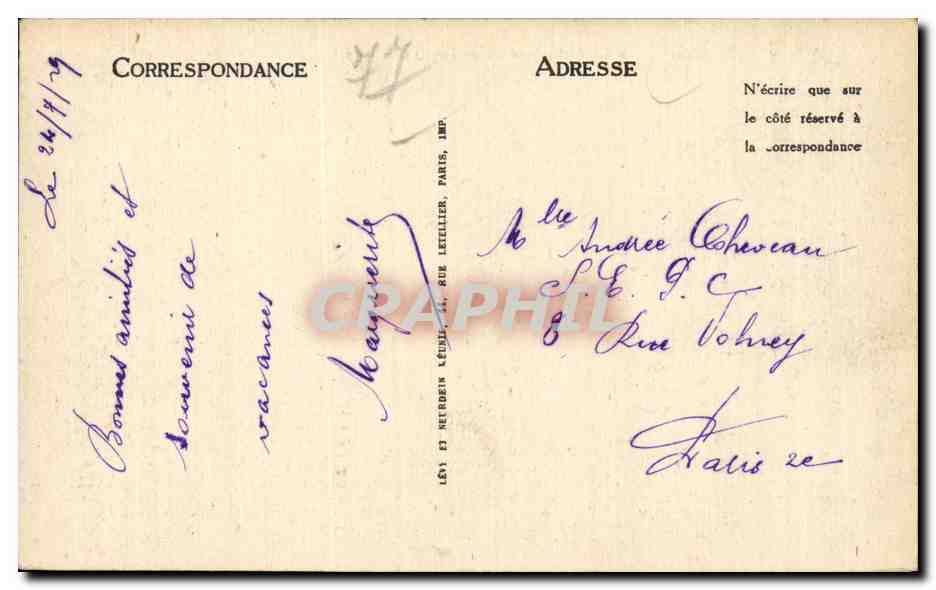 CORRESPONDANCE
77
Le 24/7/29
Bonnes amitiés et
souvenir de
vacances
Marguerite
LÉVY ET NEURDEIN RÉUNIS, 44, RUE LETELLIER, PARIS, IMP.
ADRESSE
N'écrire que sur
le côté réservé à
la correspondance
Mlle Andrée Cheveau
S. E. P. C
8 Rue Volney
Paris 2e
CPARAMA CPAPHIL